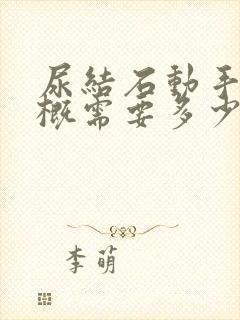 尿結石動手
概需要多少
李萌